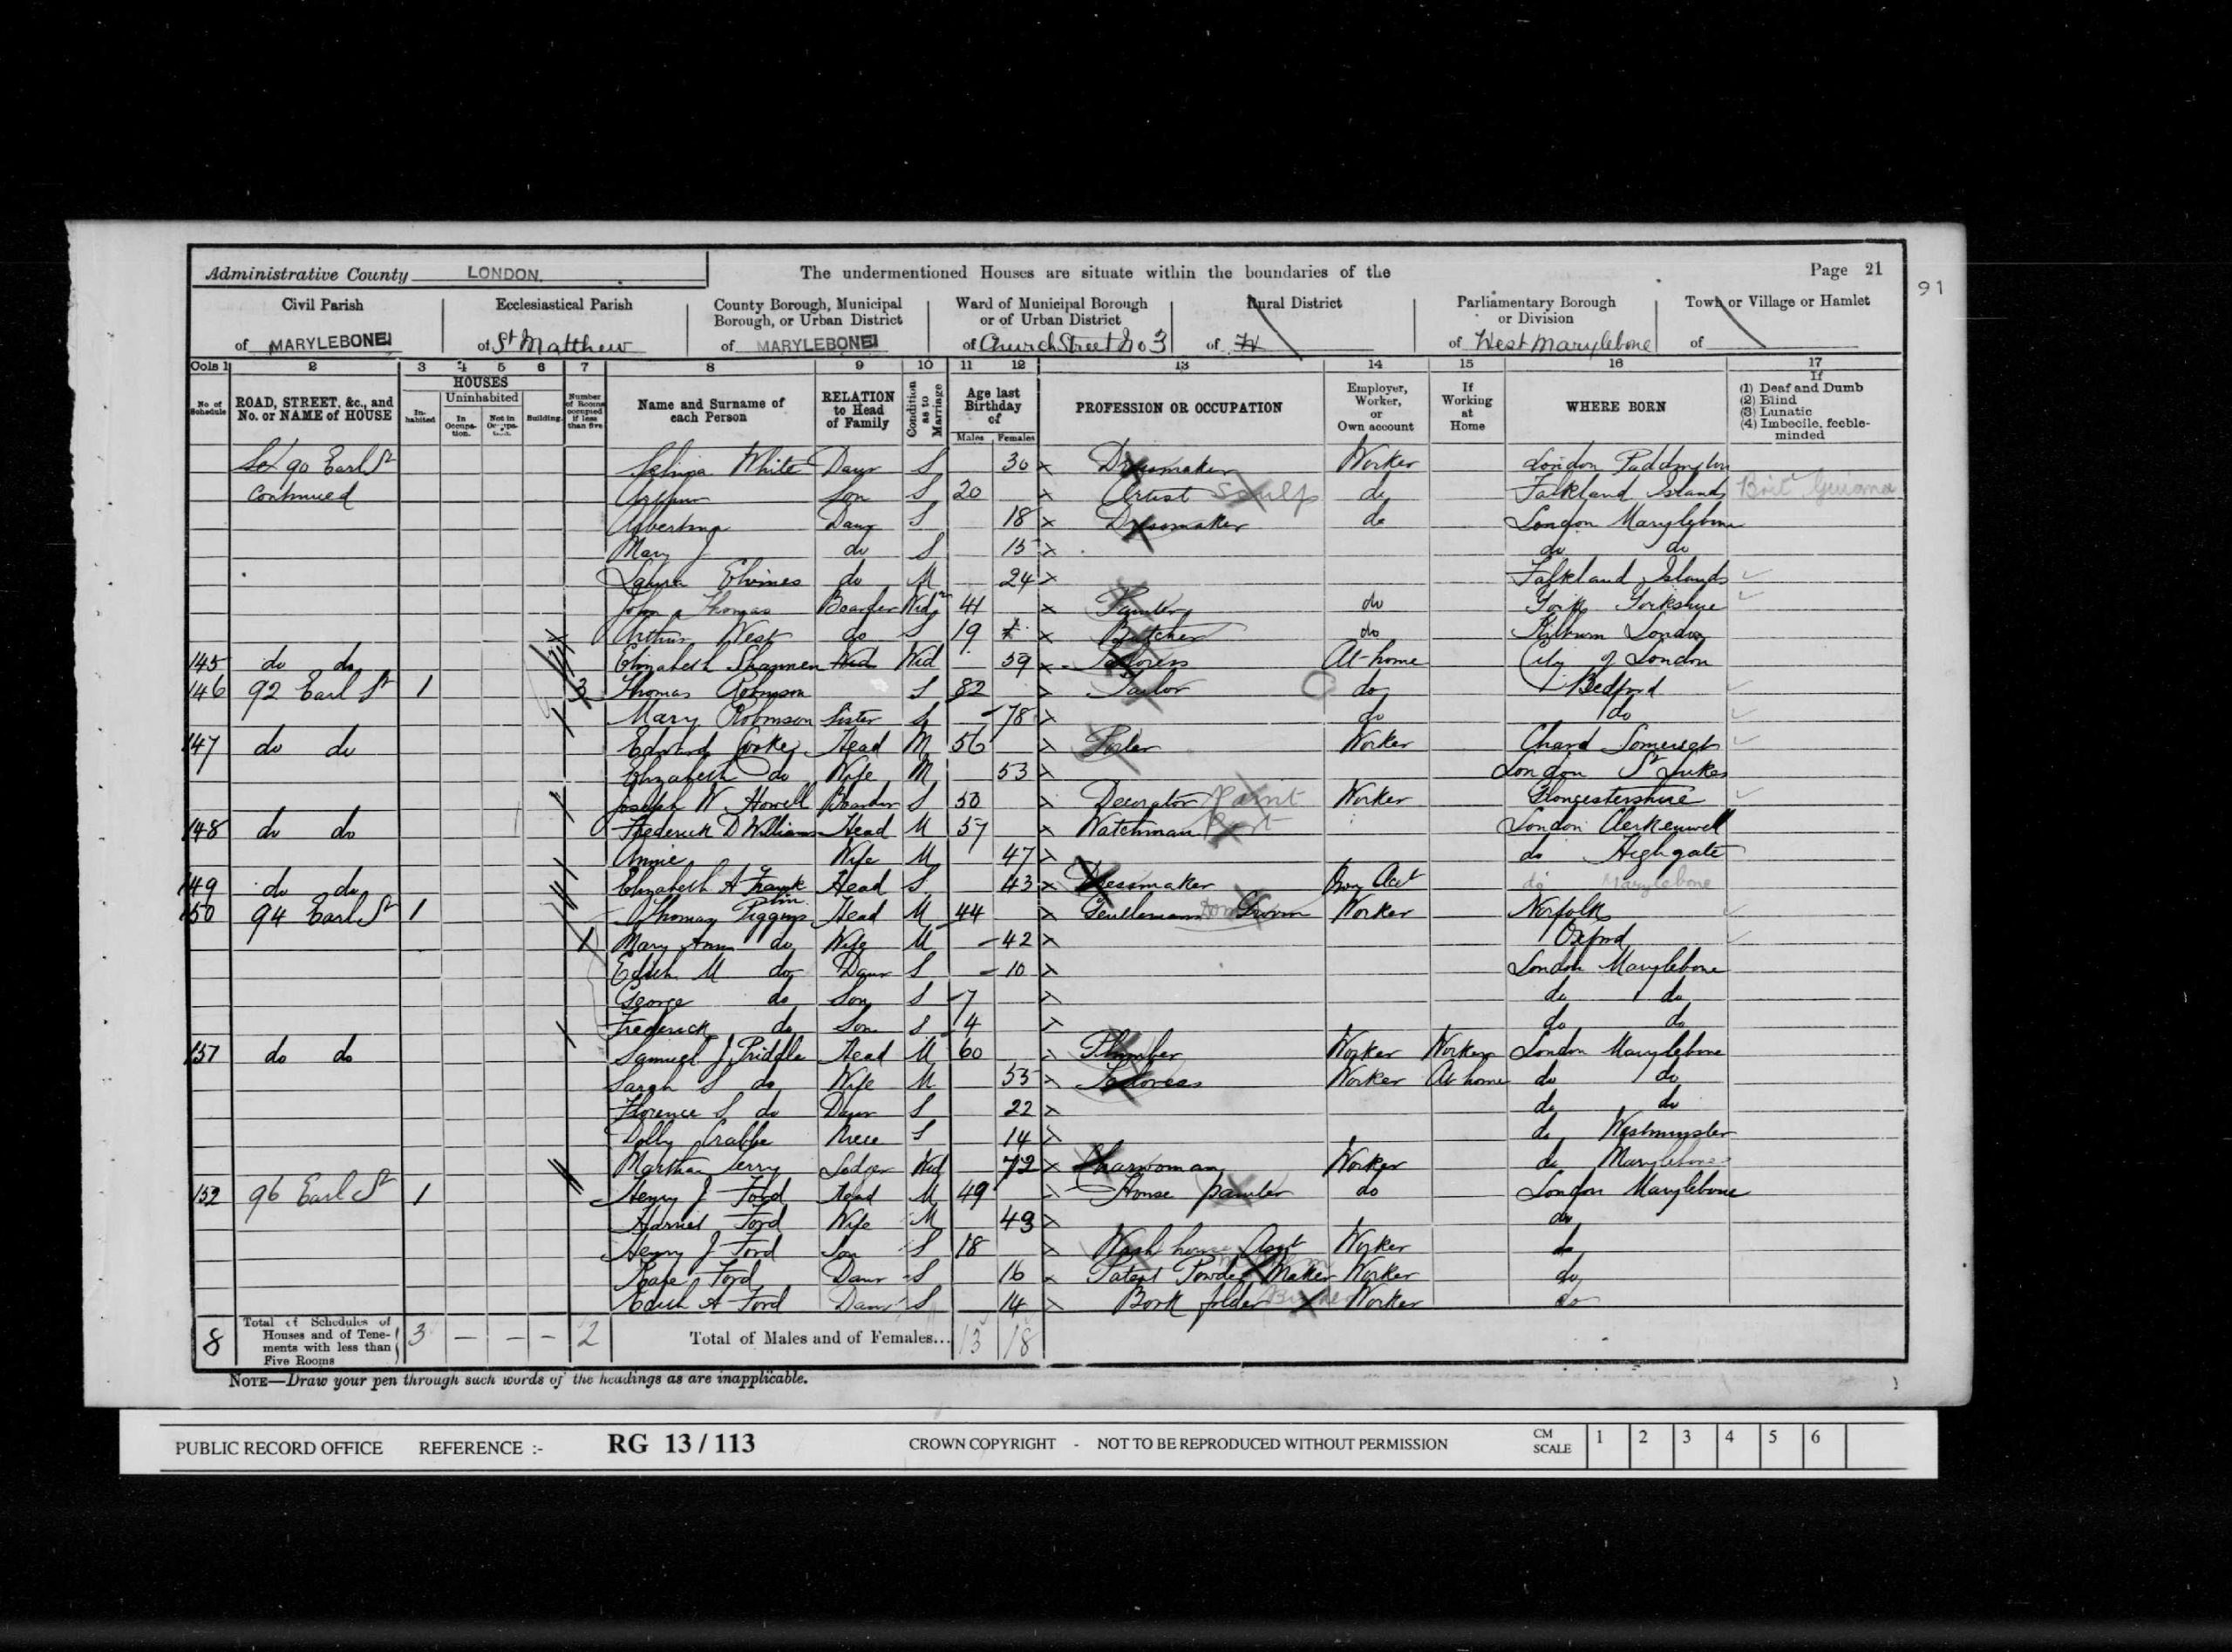 Administrative County LONDON. The undermentioned Houses are situate within the boundaries of the Page 21
91
Civil Parish of MARYLEBONE
Ecclesiastical Parish of St Matthew
County Borough, Municipal Borough, or Urban District of MARYLEBONE
Ward of Municipal Borough or of Urban District of Church Street No 3
Rural District of
Parliamentary Borough or Division of West Marylebone
Town or Village or Hamlet of
Cols 1 2 3 4 5 6 7 8 9 10 11 12 13 14 15 16 17
No. of Schedule
ROAD, STREET, &c., and No. or NAME of HOUSE
HOUSES
In-habited
Uninhabited
In Occupa-tion.
Not in Occupa-tion.
Building
Number of Rooms occupied if less than five
Name and Surname of each Person
RELATION to Head of Family
Condition as to Marriage
Age last Birthday of
Males Females
PROFESSION OR OCCUPATION
Employer, Worker, or Own account
If Working at Home
WHERE BORN
If
(1) Deaf and Dumb
(2) Blind
(3) Lunatic
(4) Imbecile, feeble-minded
90 Earl St Selina White Daur S 30 Dressmaker Worker London Paddington
Continued Arthur Son S 20 Artist Sculp do Falkland Islands
Albertina Daur S 18 Dressmaker do London Marylebone
Mary J do S 15 do do
Laura do M 24 Falkland Islands
John Thomas Boarder Widr 41 Painter do York Yorkshire
Arthur West do S 19 Butcher do Kilburn London
145 do do Elizabeth Wid 59 Tailoress At home City of London
146 92 Earl St 1 3 Thomas Robinson S 82 Tailor do Bedford
Mary Robinson Sister S 78 do do
147 do do Edward Cooke Head M 56 Porter Worker Chard Somerset
Elizabeth do Wife M 53 London St Lukes
Joseph W. Howell Boarder S 50 Decorator Paint Worker Gloucestershire
148 do do Frederick D Williams Head M 57 Watchman London Clerkenwell
Annie Wife M 47 do Highgate
149 do do Elizabeth A Frank Head S 43 Dressmaker Own Act do Marylebone
150 94 Earl St 1 Thomas Piggin Head M 44 Gentlemans Groom Worker Norfolk
1 Mary Ann do Wife M 42 Oxford
Edith M do Daur S 10 London Marylebone
George do Son S 7 do do
Frederick do Son S 4 do do
151 do do Samuel J Priddle Head M 60 Plumber Worker Worker London Marylebone
Sarah S do Wife M 55 Tailoress Worker At home do do
Florence S do Daur S 22 do do
Dolly Crabbe Niece S 14 do Westminster
Martha Terry Lodger Wid 72 Charwoman Worker do Marylebone
152 96 Earl St 1 Henry J Ford Head M 49 House painter do London Marylebone
Harriet Ford Wife M 49 do
Henry J Ford Son S 18 Wash house Asst Worker do
Kate Ford Daur S 16 Patent Powder Maker Worker do
Edith A Ford Daur S 14 Book folder Worker do
8 Total of Schedules of Houses and of Tenements with less than Five Rooms 3 — — — 2 Total of Males and of Females... 13 18
NOTE—Draw your pen through such words of the headings as are inapplicable.
PUBLIC RECORD OFFICE REFERENCE :- RG 13 / 113 CROWN COPYRIGHT - NOT TO BE REPRODUCED WITHOUT PERMISSION CM SCALE 1 2 3 4 5 6